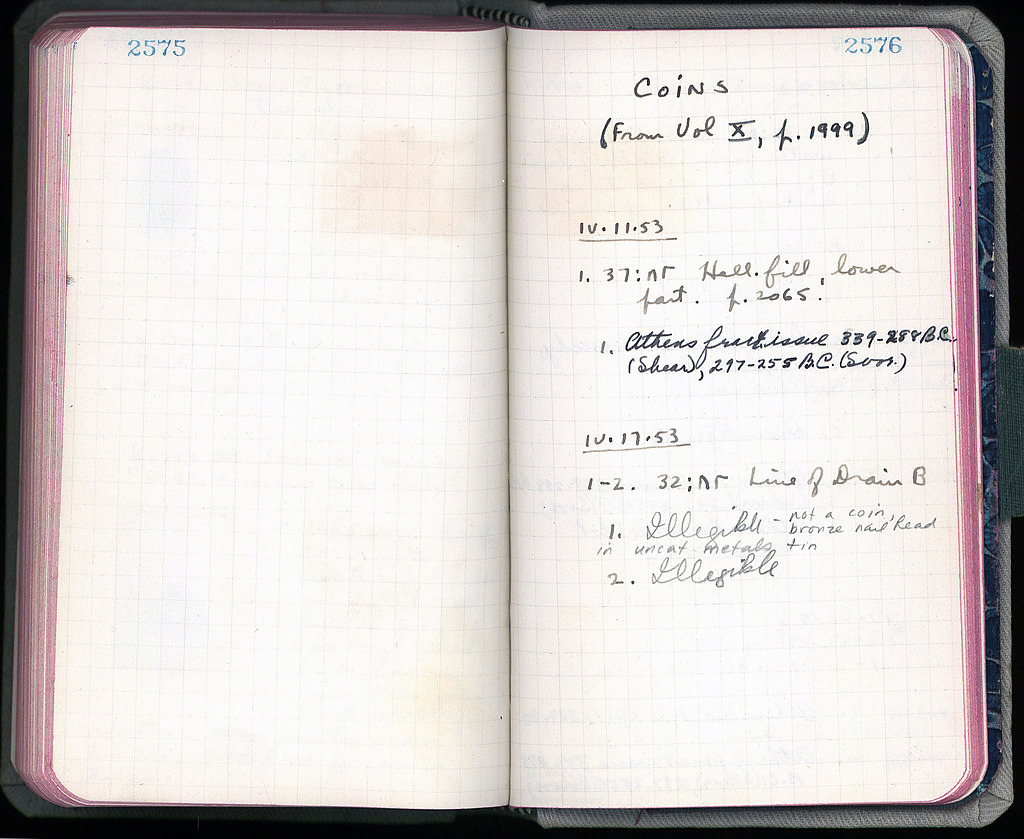 2575
2576
COINS
(From Vol X, p. 1999)
IV.11.53
1. 37:ΛΓ Hell. fill, lower
part. p. 2065.
1. Athens issue 339-288 B.C.
(Shear), 297-255 B.C. (Svor.)
IV.17.53
1-2. 32:ΛΓ Line of Drain B
1. Illegible - not a coin,
bronze nail head
in uncat. metals tin
2. Illegible